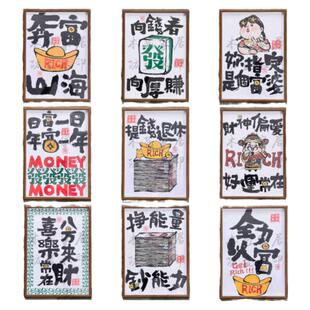 奔富
RICH
山海
向錢看
發
向厚賺
富婆
是個
日富一日
年富一年
MONEY
發發發發
MONEY
提錢退休
RICH
財神偏愛
RICH
好運常在
八方來財
喜樂常在
掙能量
鈔能力
全力
火富
Get
Rich!!!
RICH